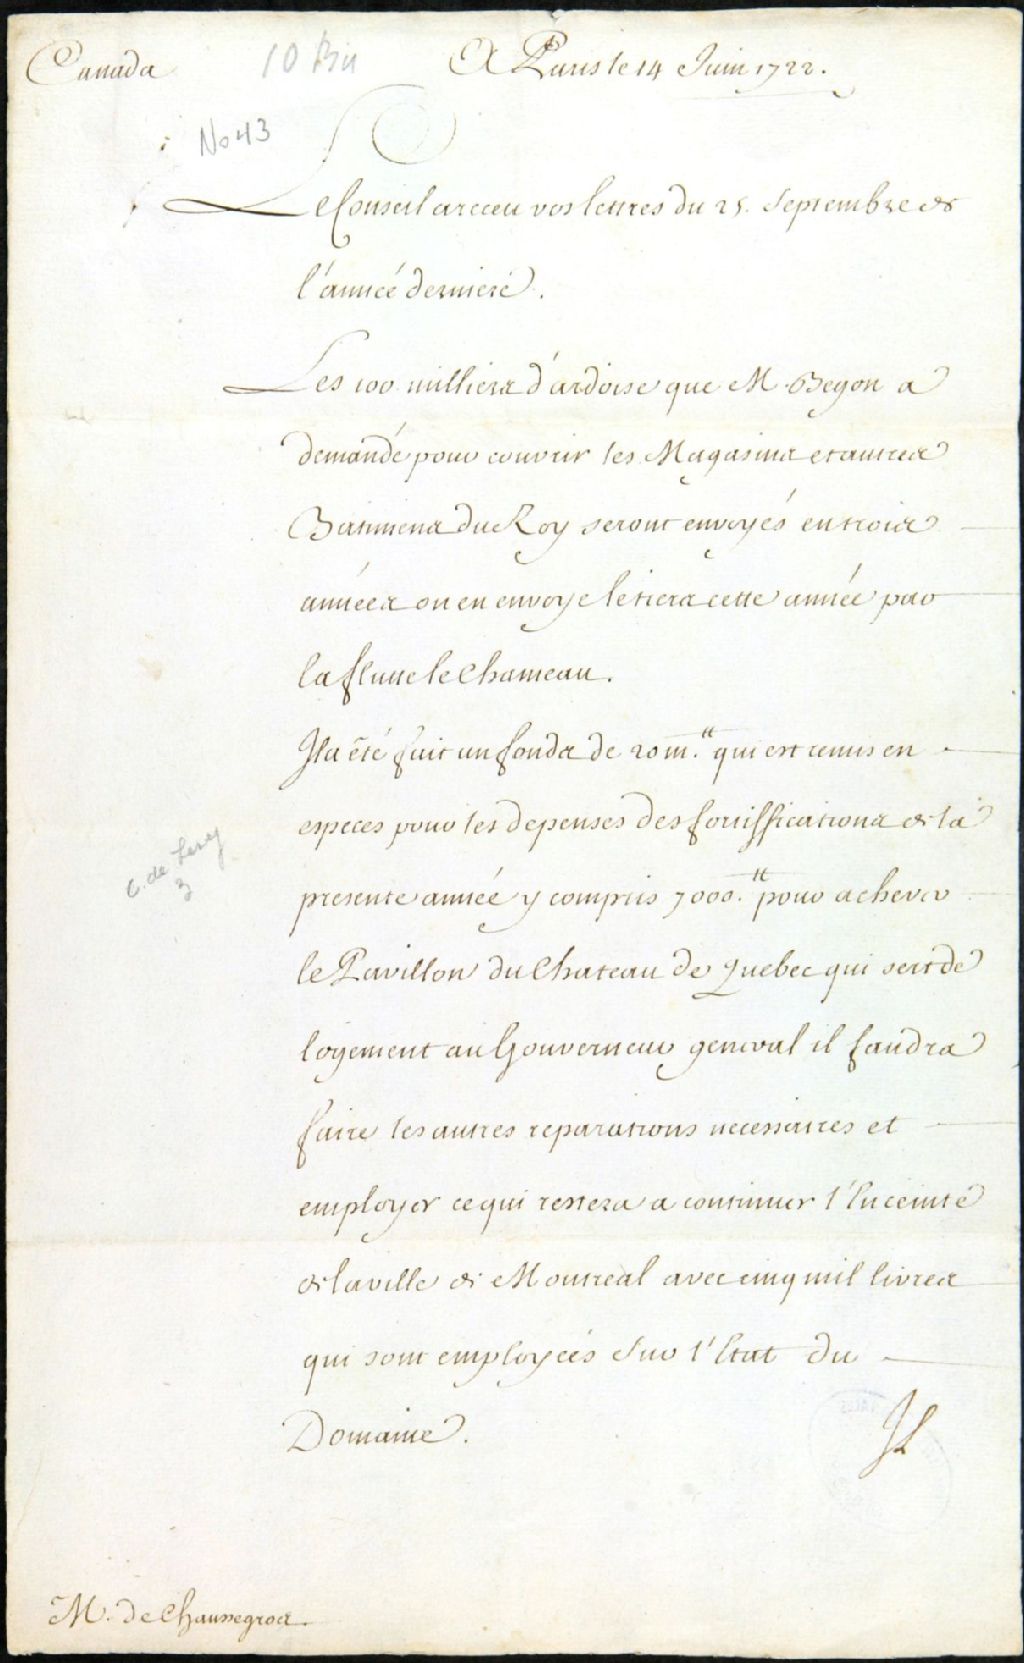 Canada
10 Bis
A Paris le 14 Juin 1722.
No 43
Le Conseil a receu vos lettres du 25. Septembre de
l'année derniere.
Les 100 milliers d'ardoise que M. Begon a
demandé pour couvrir les Magasins et autres
Batimens du Roy seront envoyés en trois
années on en envoye le tiers cette année par
la flutte le Chameau.
Il a été fait un fonds de 20 m.tt qui est remis en
especes pour les depenses des fortiffications de la
presente année y compris 7000.tt pour achever
le Pavillon du Chateau de Quebec qui sert de
logement au Gouverneur general il faudra
faire les autres reparations necessaires et
employer ce qui restera a continuer l'Enceinte
de la ville de Montreal avec cinq mil livres
qui sont employées sur l'Etat du
Domaine.
Il
C. de Lery
3
M. de Chaussegros.